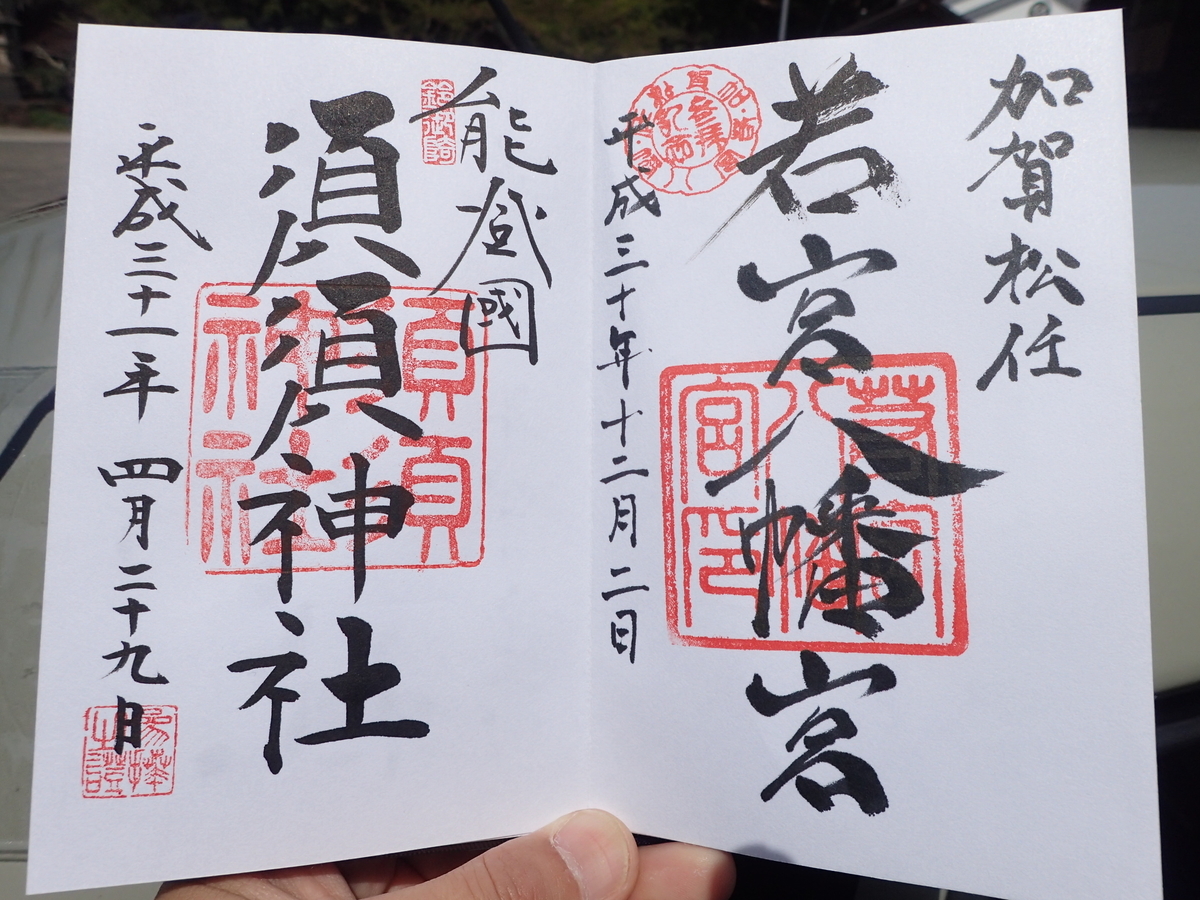 加賀松任
若宮八幡宮
若宮八幡宮印
平成三十年十二月二日
能登國
須須神社
須須神社
平成三十一年四月二十九日
参拝之證